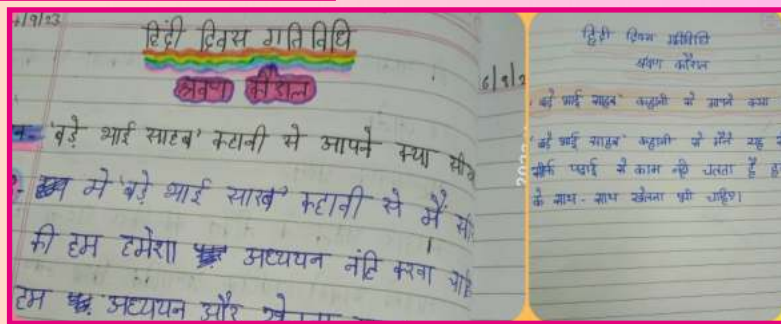 /9/23
हिंदी दिवस गतिविधि
श्रवण कौशल
'बड़े भाई साहब' कहानी से आपने क्या सीख
में 'बड़े भाई साहब' कहानी से मैं सी
की हम हमेशा अध्ययन नंहि करना चाहि
हम अध्ययन और
6/9/2
हिंदी दिवस गतिविधि
श्रवण कौशल
'बड़े भाई साहब' कहानी से आपने क्या
'बड़े भाई साहब' कहानी से मैंने यह
सीर्फ पढ़ाई से काम नहीं चलता है
के साथ - साथ खेलना भी चाहिए।